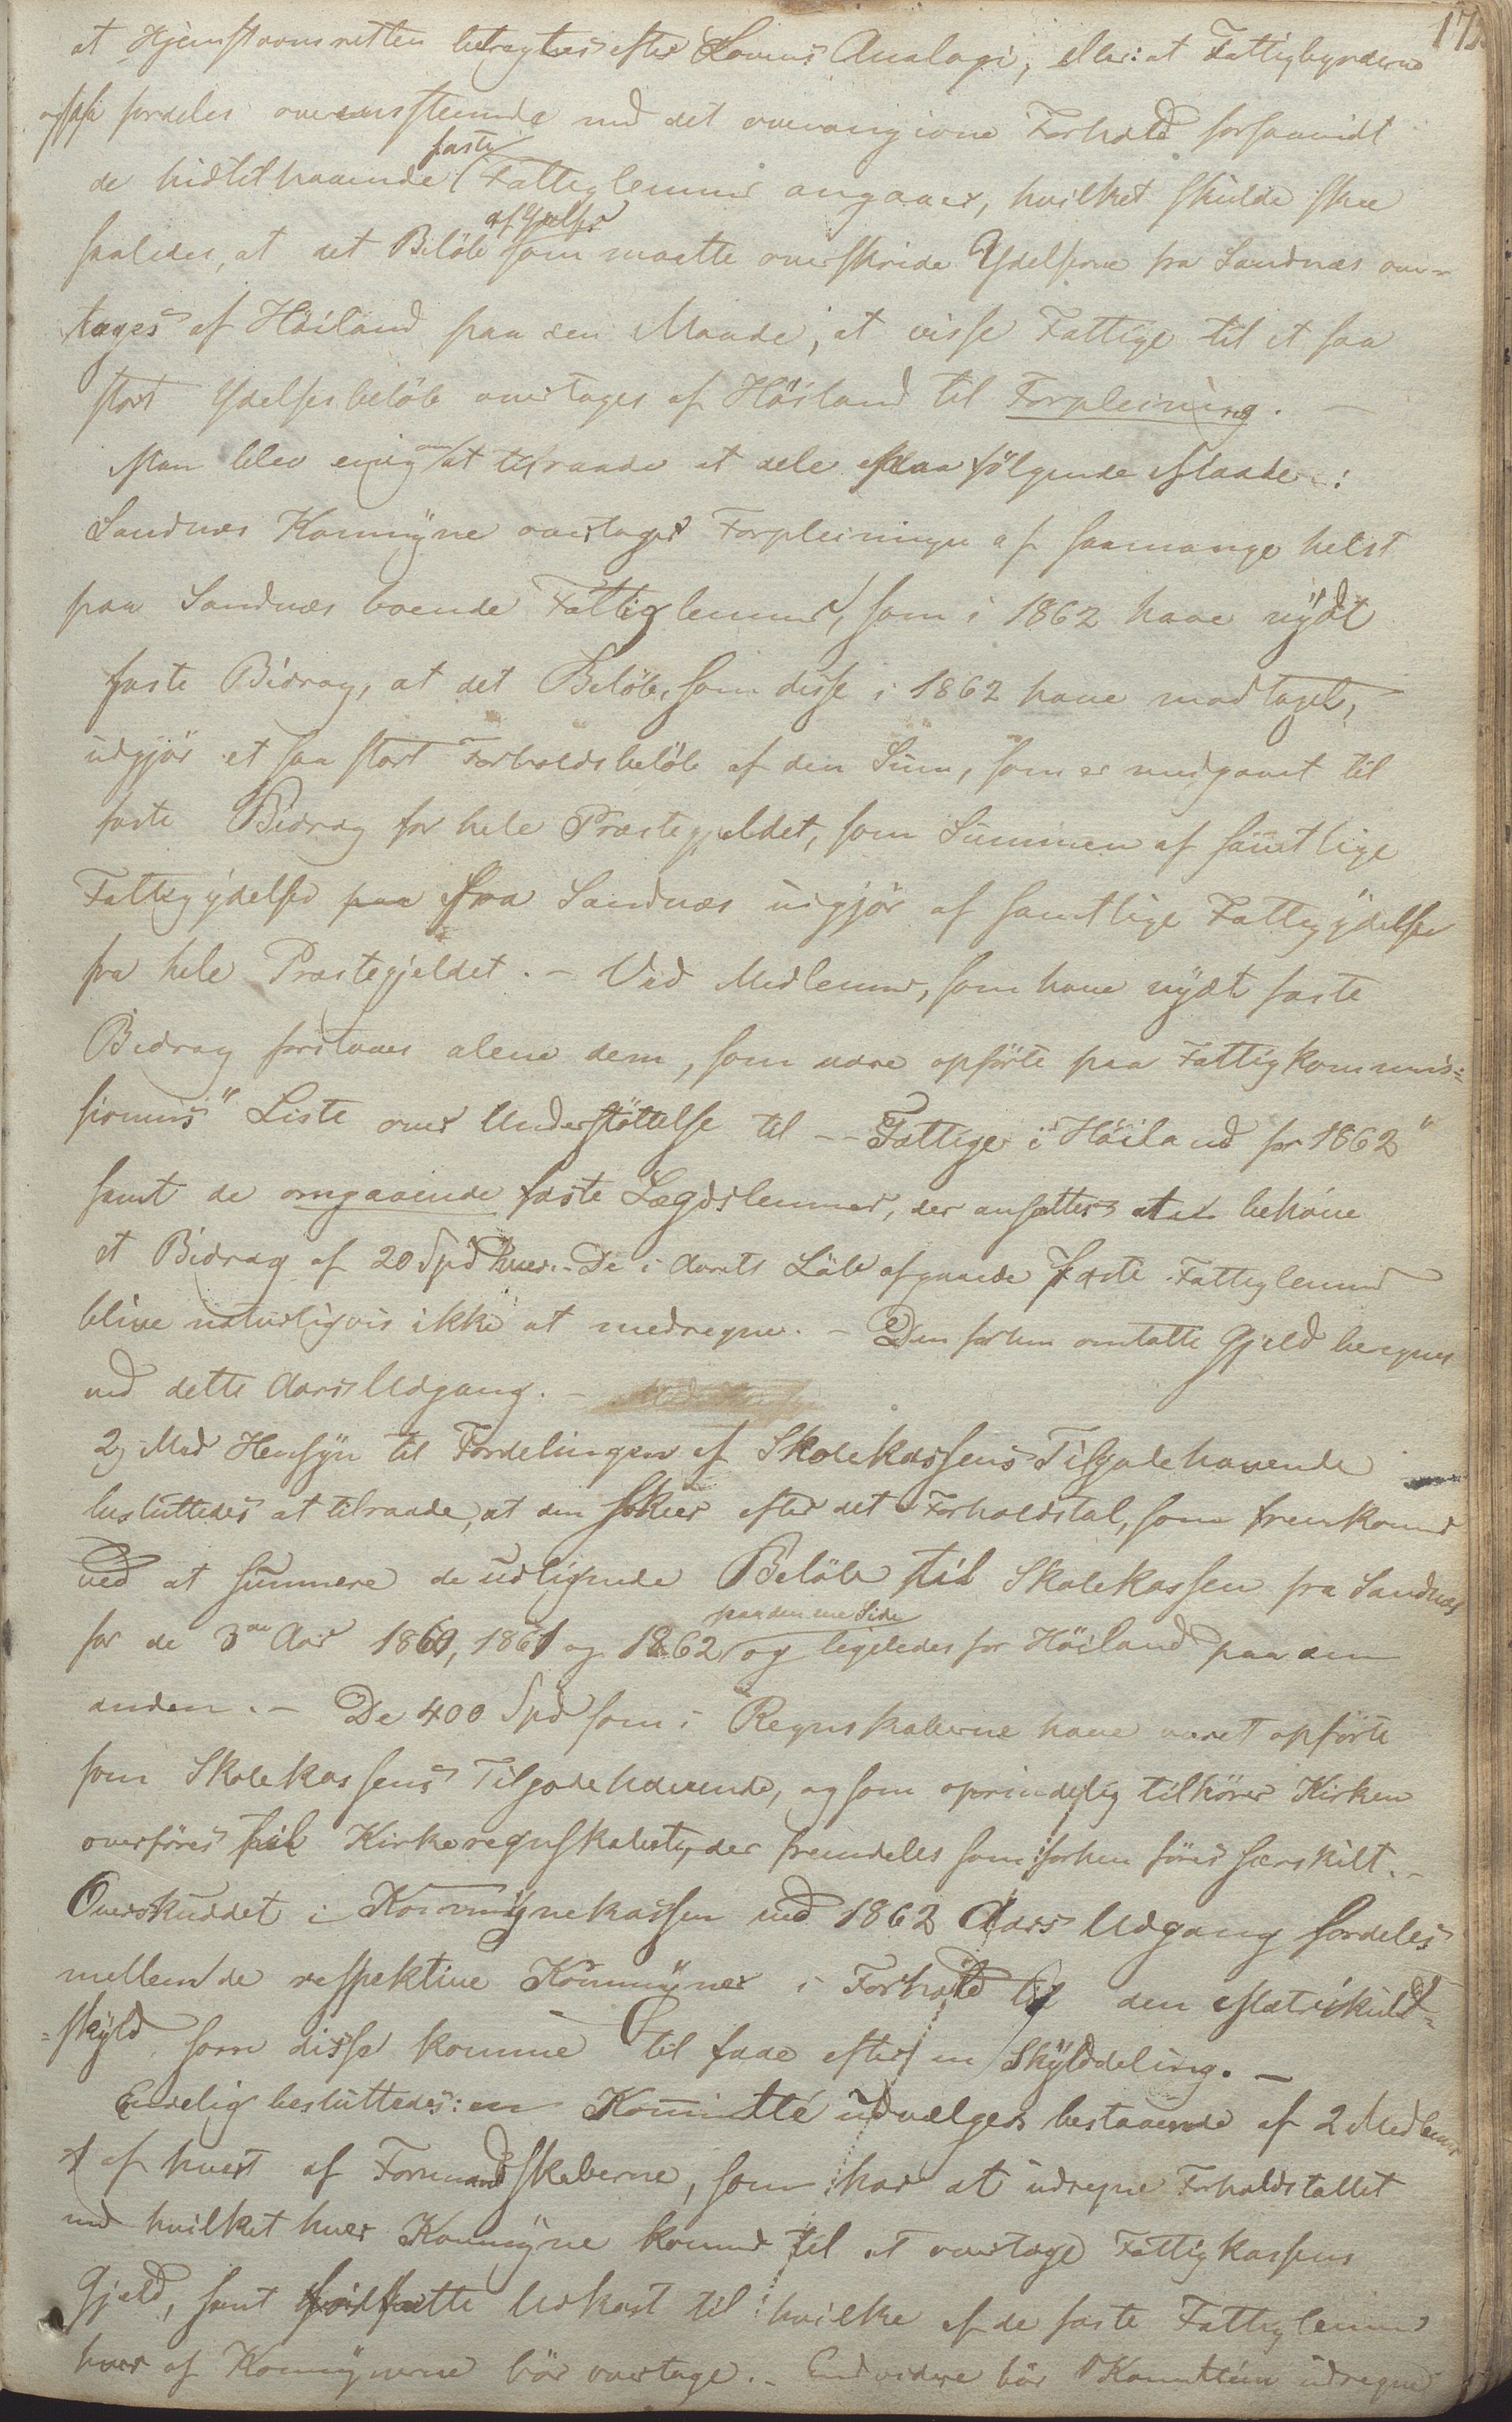 172
at Hjemstavnsretten betragtes efter Lovens Analogi, eller: at Fattigbyrderne
ogsaa fordeles overensstemmende med det ovenangivne Forhold forsaavidt
de hidtilhavende faste Fattiglemmer angaaer, hvilket skulde skee
saaledes, at det Beløb af Ydelser som maatte overskride Ydelserne fra Sandnæs over-
tages af Høiland paa den Maade, at visse Fattige til et saa
stort Ydelsesbeløb overtages af Høiland til Forpleining. —
Man blev enig om at tilraade at dele paa følgende Maade:
Sandnæs Kommyne overtager Forpleiningen af saamange helst
paa Sandnæs boende Fattiglemmer, som i 1862 have nydt
faste Bidrag, at det Beløb, som disse i 1862 have modtaget,
udgjør et saa stort Forholdsbeløb af den Sum, som er medgaaet til
faste Bidrag for hele Præstegjeldet, som Summen af samtlige
Fattigydelser paa fra Sandnæs udgjør af samtlige Fattigydelser
fra hele Præstegjeldet. – Ved Medlemmer, som have nydt faste
Bidrag forstaaes alene dem, som være opførte paa Fattigkommis=
sionens "Liste over Understøttelse til -- Fattige i Høiland for 1862"
samt de omgaaende faste Lægdslemmer, der ansættes at behøve
et Bidrag af 20 Spd hver. - De i Aarets Løb afgaaede faste Fattiglemmer
blive naturligvis ikke at medregne. – Den forhen omtalte Gjeld beregnes
ved dette Aars Udgang. –
2) Med Hensyn til Fordelingen af Skolekassens Tilgodehavende
besluttedes at tilraade, at den skeer efter det Forholdstal, som fremkommer
ved at summere de udlignede Beløb til Skolekassen fra Sandnæs
for de 3de Aar 1860, 1861 og 1862 paa den ene Side og ligeledes for Høiland paa den
anden. – De 400 Spd som i Regnskaberne have været opførte
som Skolekassens Tilgodehavende, og som oprindelig tilhører Kirken
overføres til Kirkeregnskabet, der fremdeles som forhen føres særskilt. –
Overskuddet i Kommynekassen ved 1862 Aars Udgang fordeles
mellem de respektive Kommyner i Forhold til den Matrikul=
=skyld som disse komme til faae efter en Skylddeling. –
Endelig besluttedes: en Komitté udvælges bestaaende af 2 Medlemmer
1 af hvert af Formandskaberne, som har at udregne Forholdstallet
ved hvilket hver Kommyne kommer til at overtage Fattigkassens
Gjeld, samt forfatte Udkast til hvilke af de faste Fattiglemmer
hver af Kommynerne bør overtage. – Endvidere bør Komitteen udregne